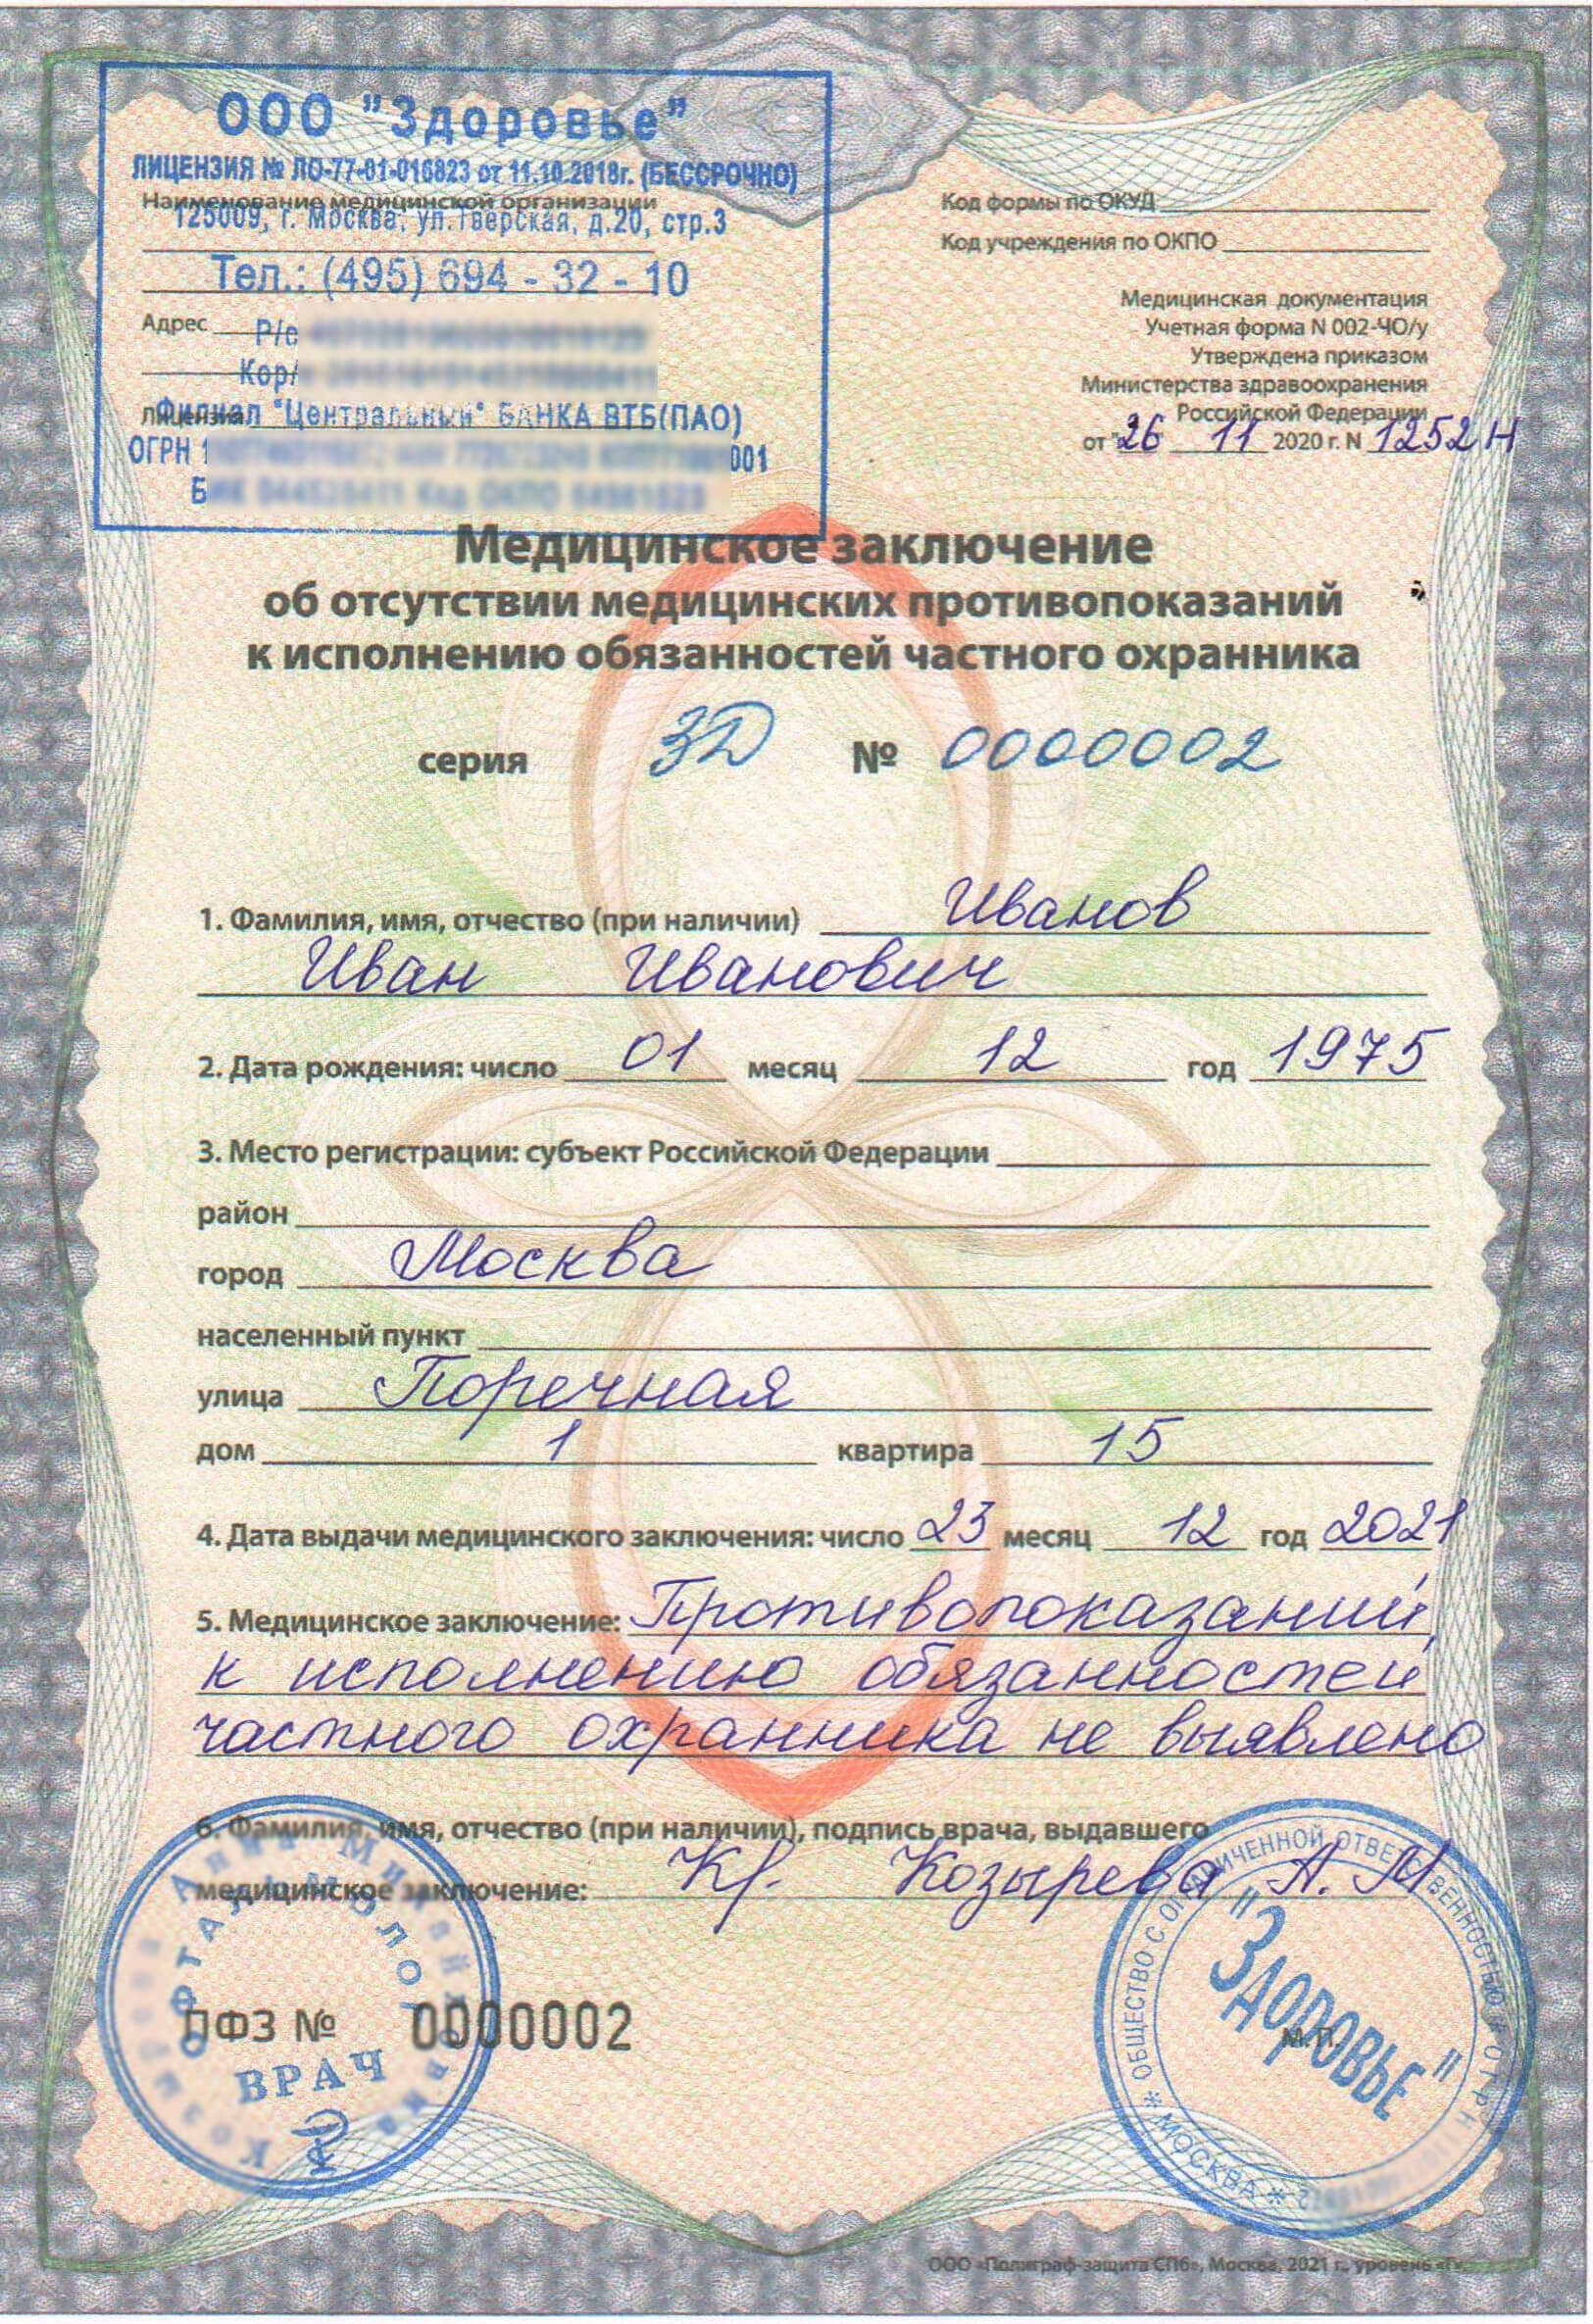 ООО "Здоровье"
ЛИЦЕНЗИЯ № ЛО-77-01-016823 от 11.10.2018г. (БЕССРОЧНО)
Наименование медицинской организации
125009, г. Москва, ул.Тверская, д.20, стр.3
Тел.: (495) 694 - 32 - 10
Адрес
Р/с
Кор/
Лицензия
Филиал "Центральный" БАНКА ВТБ(ПАО)
ОГРН 1 001
Код формы по ОКУД
Код учреждения по ОКПО
Медицинская документация
Учетная форма N 002-ЧО/у
Утверждена приказом
Министерства здравоохранения
Российской Федерации
от "26 11 2020 г. N 1252н
Медицинское заключение
об отсутствии медицинских противопоказаний
к исполнению обязанностей частного охранника
серия ЗД № 0000002
1. Фамилия, имя, отчество (при наличии) Иванов
Иван Иванович
2. Дата рождения: число 01 месяц 12 год 1975
3. Место регистрации: субъект Российской Федерации
район
город Москва
населенный пункт
улица Поречная
дом 1 квартира 15
4. Дата выдачи медицинского заключения: число 23 месяц 12 год 2021
5. Медицинское заключение: Противопоказаний
к исполнению обязанностей
частного охранника не выявлено
6. Фамилия, имя, отчество (при наличии), подпись врача, выдавшего
медицинское заключение: Кр. Козырева А. М
ОФТАЛЬМОЛОГ
ВРАЧ
ПФЗ № 0000002
ОБЩЕСТВО С ОГРАНИЧЕННОЙ ОТВЕТСТВЕННОСТЬЮ * ОГРН
* МОСКВА *
"ЗДОРОВЬЕ"
М.П.
ООО «Полиграф-защита СПб», Москва, 2021 г., уровень «Г».